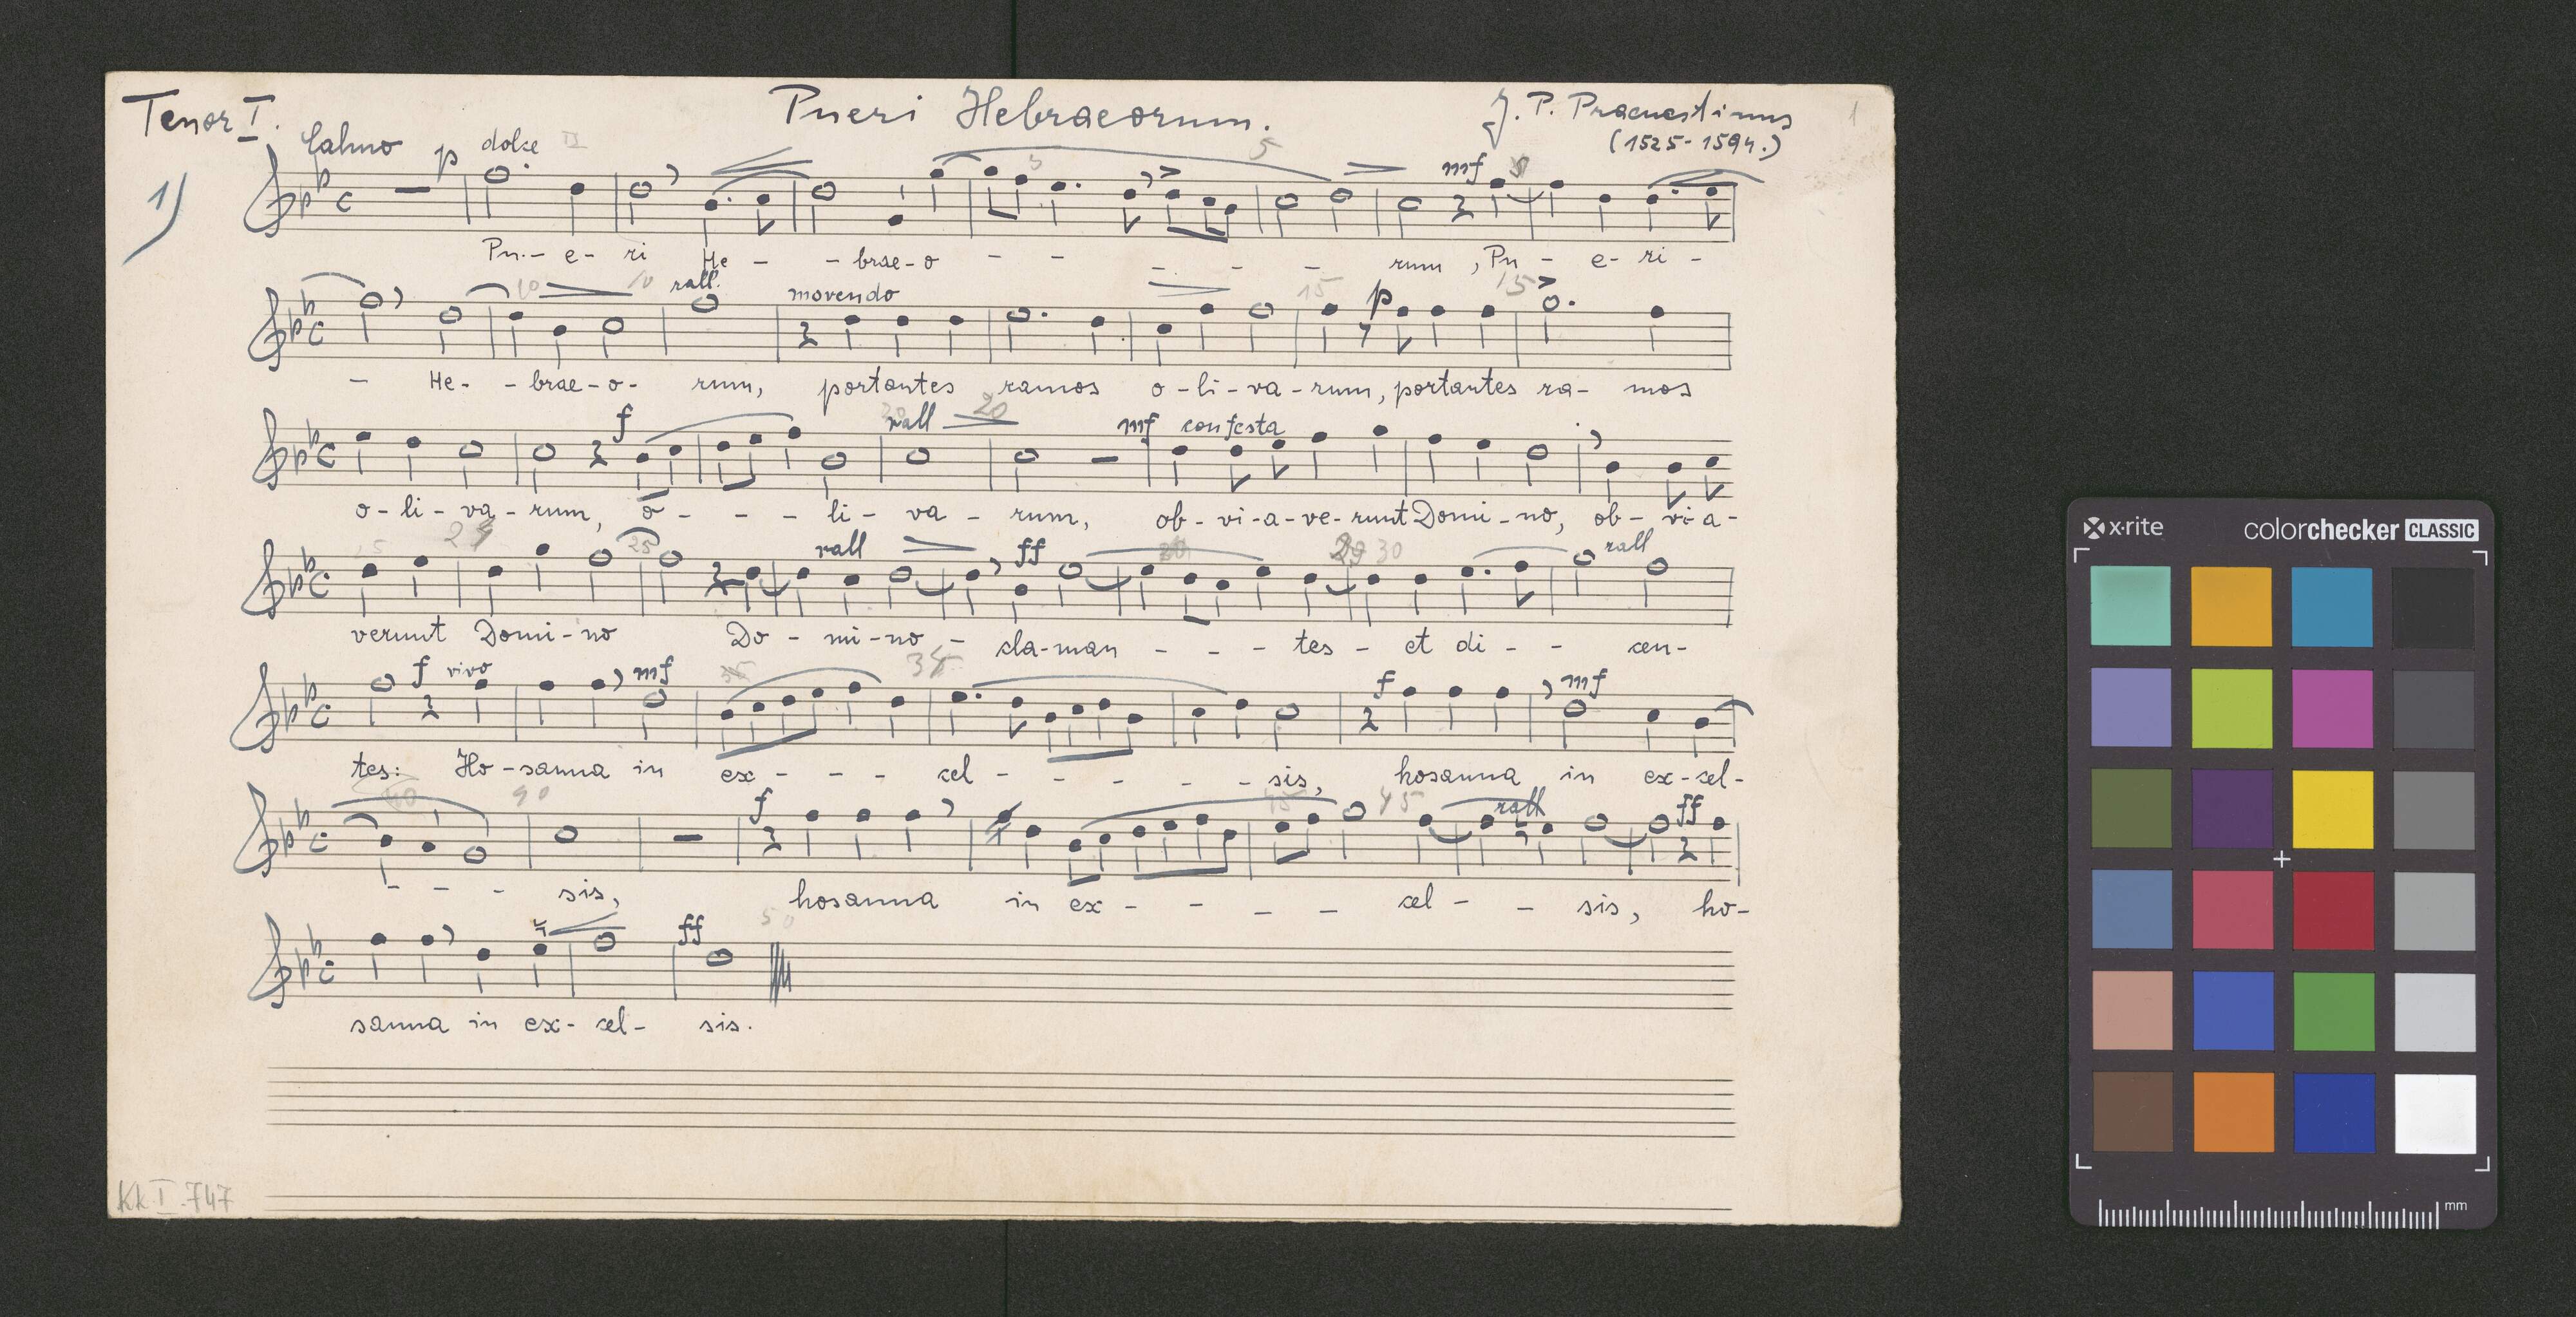 Tenor I. Pueri Hebraeorum. J. P. Praenestinus 1
(1525-1594.)
Calmo p dolce 5 5
1) mf
Pu - e - ri He - - brae - o - - - - - rum, Pu - e - ri -
10 10 rall. movendo 15 p 15
- He - - brae - o - rum, portantes ramos o - li - va - rum, portantes ra - mos
f rall 20 mf con festa
o - li - va - rum, o - - - li - va - rum, ob - vi - a - ve - runt Domi - no, ob - vi - a -
25 25 rall ff 29 30 rall
verunt Domi - no Do - mi - no - cla - man - - - tes - et di - - cen -
f vivo mf 35 f mf
tes: Ho - sanna in ex - - - cel - - - - - - sis, hosanna in ex - cel -
40 40 f 45 45 rall ff
- - - sis, hosanna in ex - - - - cel - - sis, ho -
ff 50
sanna in ex - cel - sis.
KK I. 747
x-rite colorchecker CLASSIC
mm